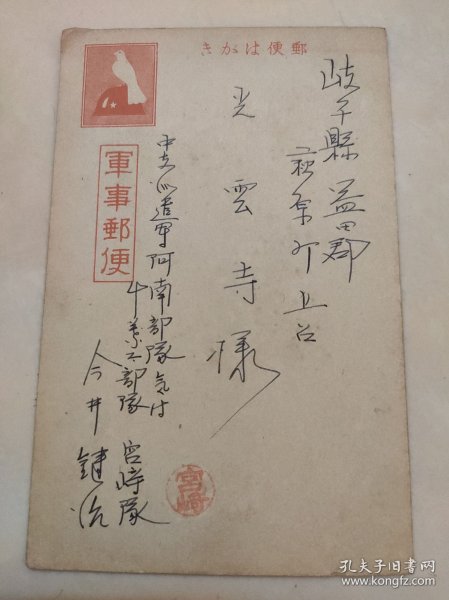 郵便はがき
岐阜縣益田郡
萩原町上呂
光雲寺様
軍事郵便
中支派遣軍阿南部隊気付
部隊 宮崎隊
今井 治
宮崎
孔夫子旧书网
www.kongfz.com